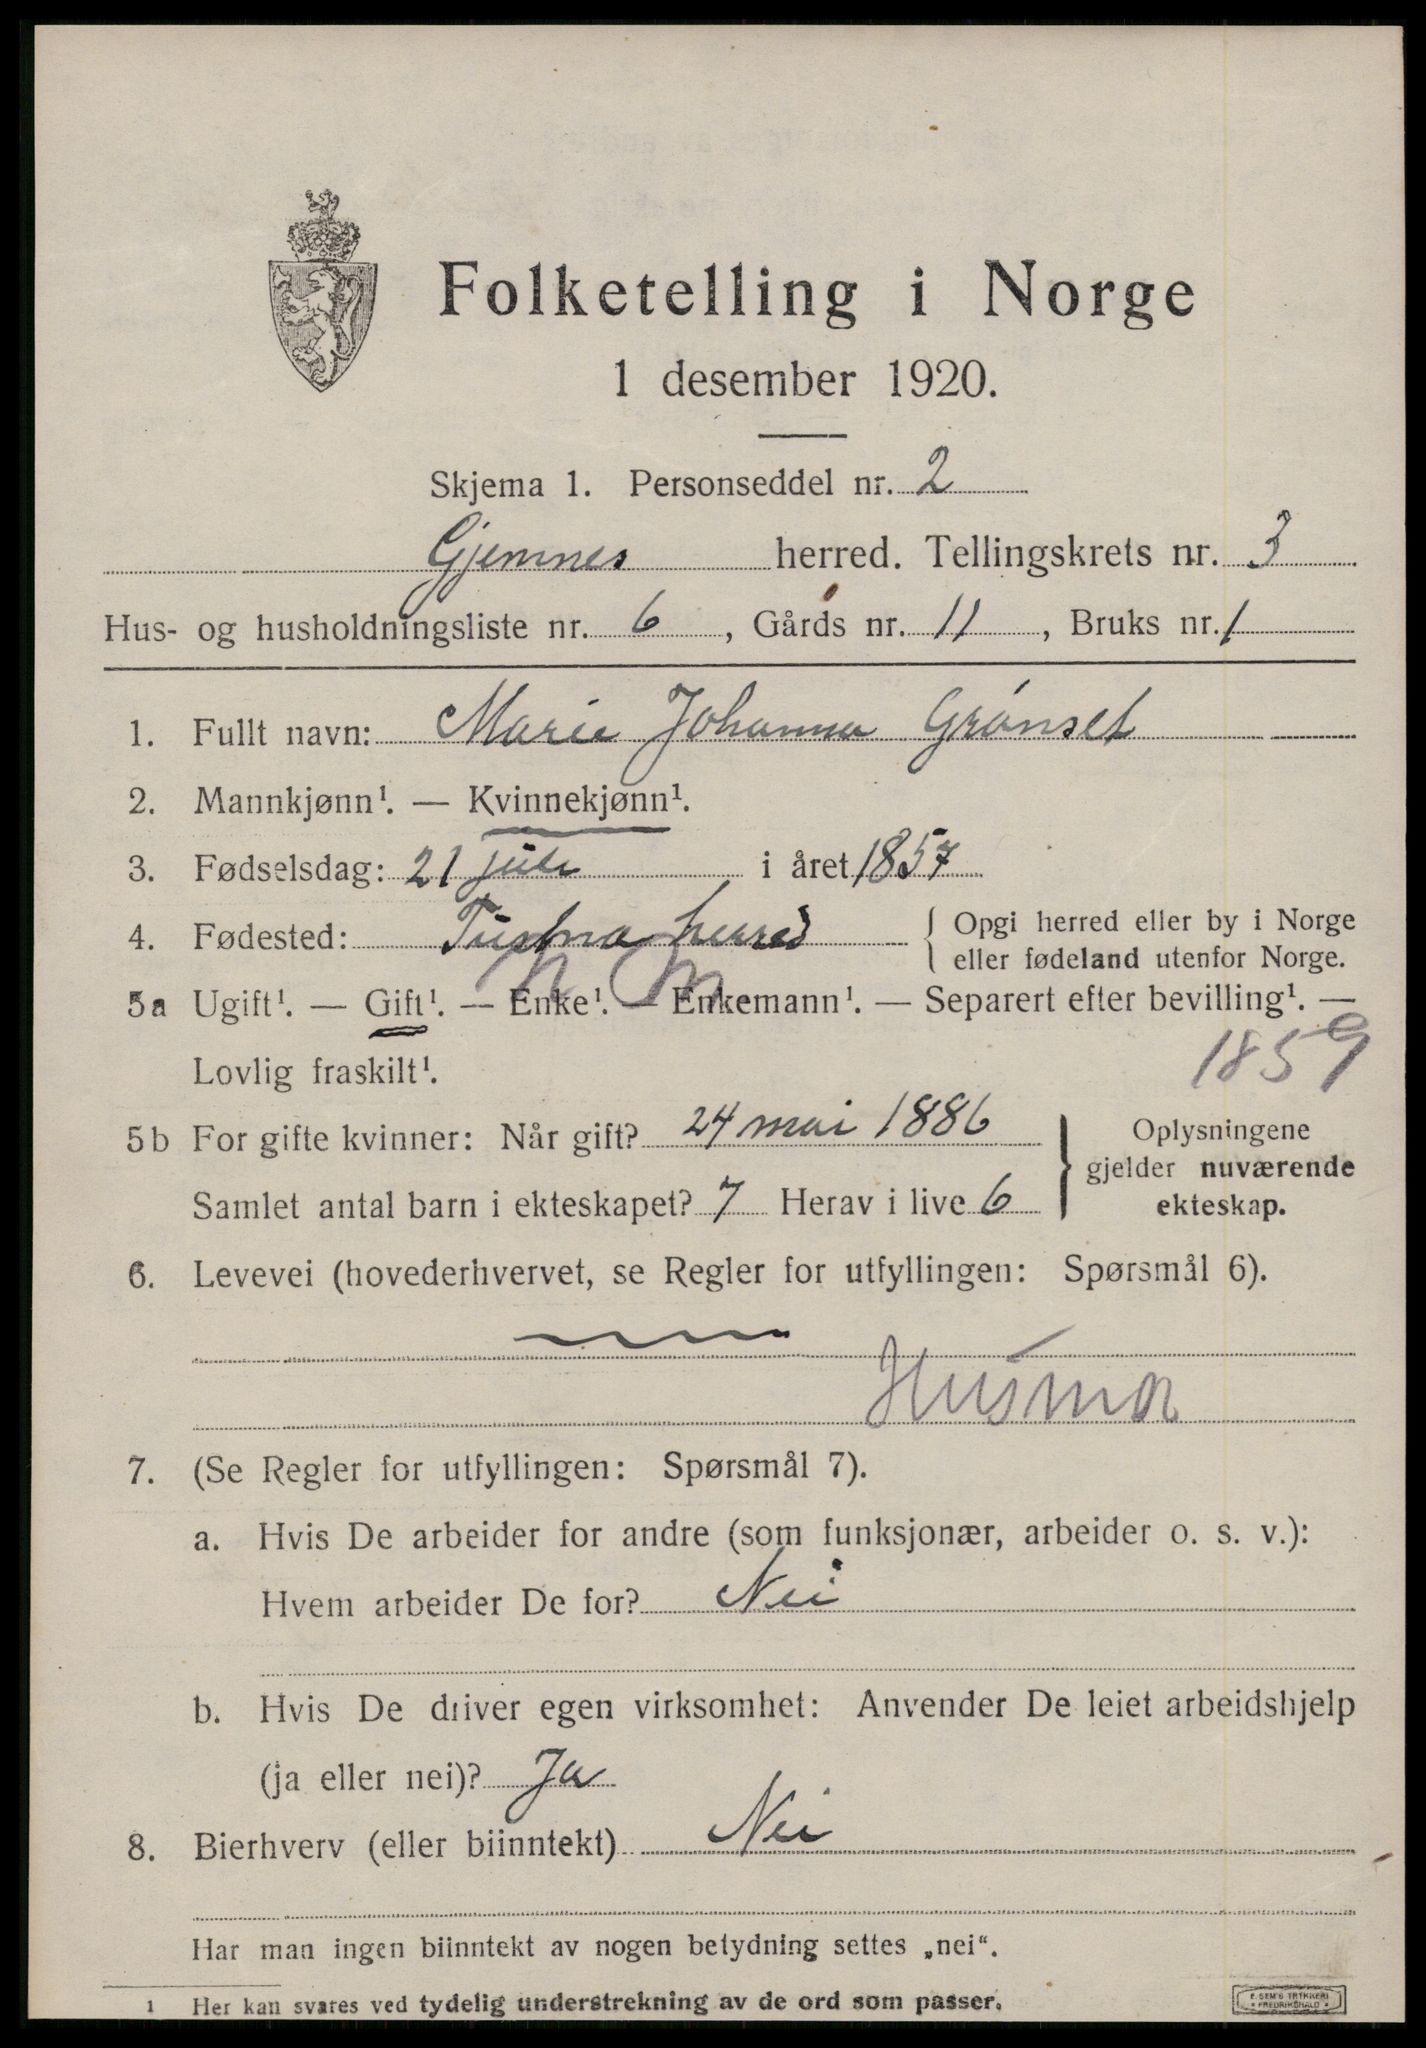 Folketelling i Norge
1 desember 1920.
Skjema 1. Personseddel nr. 2
Gjemnes herred. Tellingskrets nr. 3
Hus- og husholdningsliste nr. 6, Gårds nr. 11, Bruks nr. 1
1. Fullt navn: Marie Johanna Grønset
2. Mannkjønn¹. — Kvinnekjønn¹.
3. Fødselsdag: 21 juli i året 1857
4. Fødested: Tustna herred { Opgi herred eller by i Norge
eller fødeland utenfor Norge.
n m
5a Ugift¹. — Gift¹. — Enke¹. — Enkemann¹. — Separert efter bevilling¹. —
Lovlig fraskilt¹. 1859
5b For gifte kvinner: Når gift? 24 mai 1886
Samlet antal barn i ekteskapet? 7 Herav i live 6
} Oplysningene
gjelder nuværende
ekteskap.
6. Levevei (hovederhvervet, se Regler for utfyllingen: Spørsmål 6).
Husmor
7. (Se Regler for utfyllingen: Spørsmål 7).
a. Hvis De arbeider for andre (som funksjonær, arbeider o. s. v.):
Hvem arbeider De for? Nei
b. Hvis De driver egen virksomhet: Anvender De leiet arbeidshjelp
(ja eller nei)? Ja
8. Bierhverv (eller biinntekt) Nei
Har man ingen biinntekt av nogen betydning settes „nei“.
1 Her kan svares ved tydelig understrekning av de ord som passer.
E. SEM'S TRYKKERI
* FREDRIKSHALD *